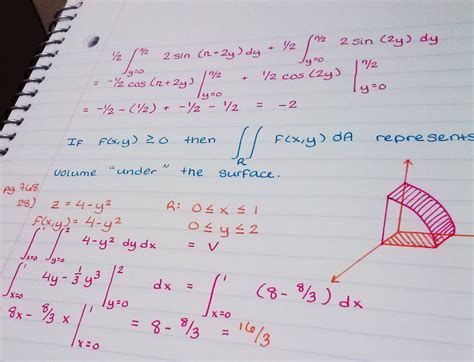 ½ ∫_{y=0}^{π/2} 2 sin (π+2y) dy + ½ ∫_{y=0}^{π/2} 2 sin (2y) dy
= -½ cos (π+2y) |_{y=0}^{π/2} + ½ cos (2y) |_{y=0}^{π/2}
= -½ - (½) + -½ - ½ = -2
If f(x,y) ≥ 0 then ∬_R f(x,y) dA represents
volume "under" the surface.
pg 768
28) z = 4-y² R: 0 ≤ x ≤ 1
f(x,y) = 4-y² 0 ≤ y ≤ 2
∫_{x=0}^{1} ∫_{y=0}^{2} 4-y² dy dx = V
∫_{x=0}^{1} 4y - ⅓ y³ |_{y=0}^{2} dx = ∫_{x=0}^{1} (8 - 8/3) dx
8x - 8/3 x |_{x=0}^{1} = 8 - 8/3 = 16/3